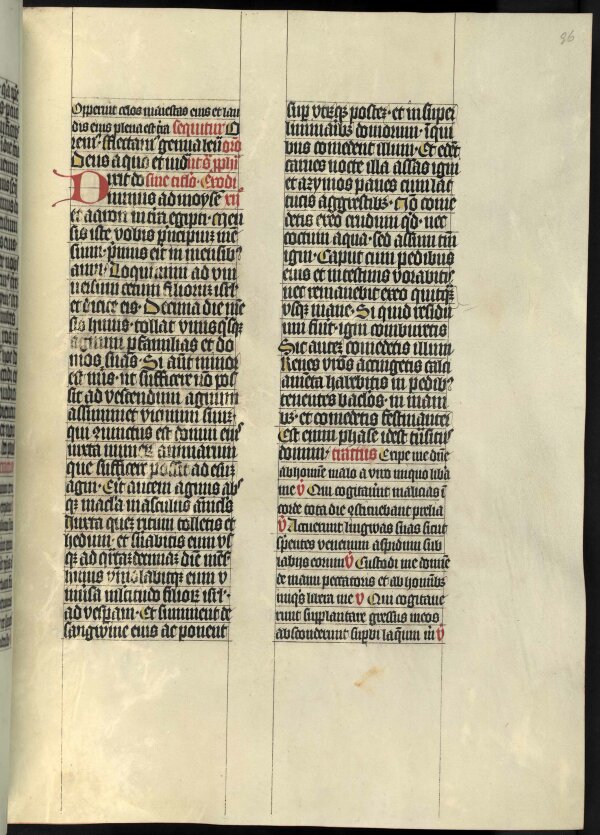 Opperuit celos maiestas eius et lau
dis eius plena est t̄ra sequitur O
rem⁹ flectam⁹ genua leu͛ orō
Deus a quo et iud
Dixit do sine titlo Exodi
minus ad moysē xij
et aaron in t̄ra egipti Men
sis iste vobis p̄ncipiuȝ mē
siuȝ p̄mus erit in mensibȝ
anni Loquimī ad vni
uersum cetum filiorū isrl̄
et dicite eis Decima die mē
sis huius tollat vnusqȝsqȝ
agnum p familias et do
mos suas Si aūt minor
est nūs ut sufficere nō pos
sit ad vescendum agnum
assummet vicinum suuȝ
qui iūnctus est domui eius
iuxta numeȝ animarum
que sufficere possūt ad esuȝ
agni Erit autem agnus abs
qȝ macla masculus aūiclꝰ
Iuxta queȝ ritum tolletis et
hedum et s̄uabitis eum vs
qȝ ad q̄rtādecimaȝ diē mēs̄
huius ymolabitqȝ eum v
niūsa mltitudo filiorȝ isrl̄
ad vesp̄am Et summent de
sangwine eius ac ponent
sup vtrūqȝ posteȝ et in super
liminaribȝ domorum ī qui
bus comedent illum Et edēt
carnes nocte illa assas igni
et azymos panes cum lac
tucis aggrestibȝ Nō come
detis ex eo crudum qd̄ nec
coctum aqua sed assum tm̄
igni Caput cum pedibus
eius et intestinis vorabitis
nec remanebit ex eo quitqȝ
vsqȝ mane Si quid residuū
um fūit igni comburetis
Sic auteȝ comedetis illum
Renes vr̄os accingetis calci
amēta habebitis in pedibȝ
tenentes baclos in mani
bȝ et comedetis festinanter
Est enim phase id est tn̄situs
domini tractus Eripe me dn̄e
ab homīe malo a viro iniquo libā
me v̄ Qui cogitauīt malicias ī
corde tota die 9stituebant prelia
v̄ Acuerunt lingwas suas sicut
s̄pentes venenum aspidum sub
labijs eorum v̄ Custodi me domīe
de manu peccatoris et ab hominibȝ
iniqīs libera me v̄ Qui cogitaue
runt supplantare gressus meos
absconderunt supbi laq̄um m̄ v̄